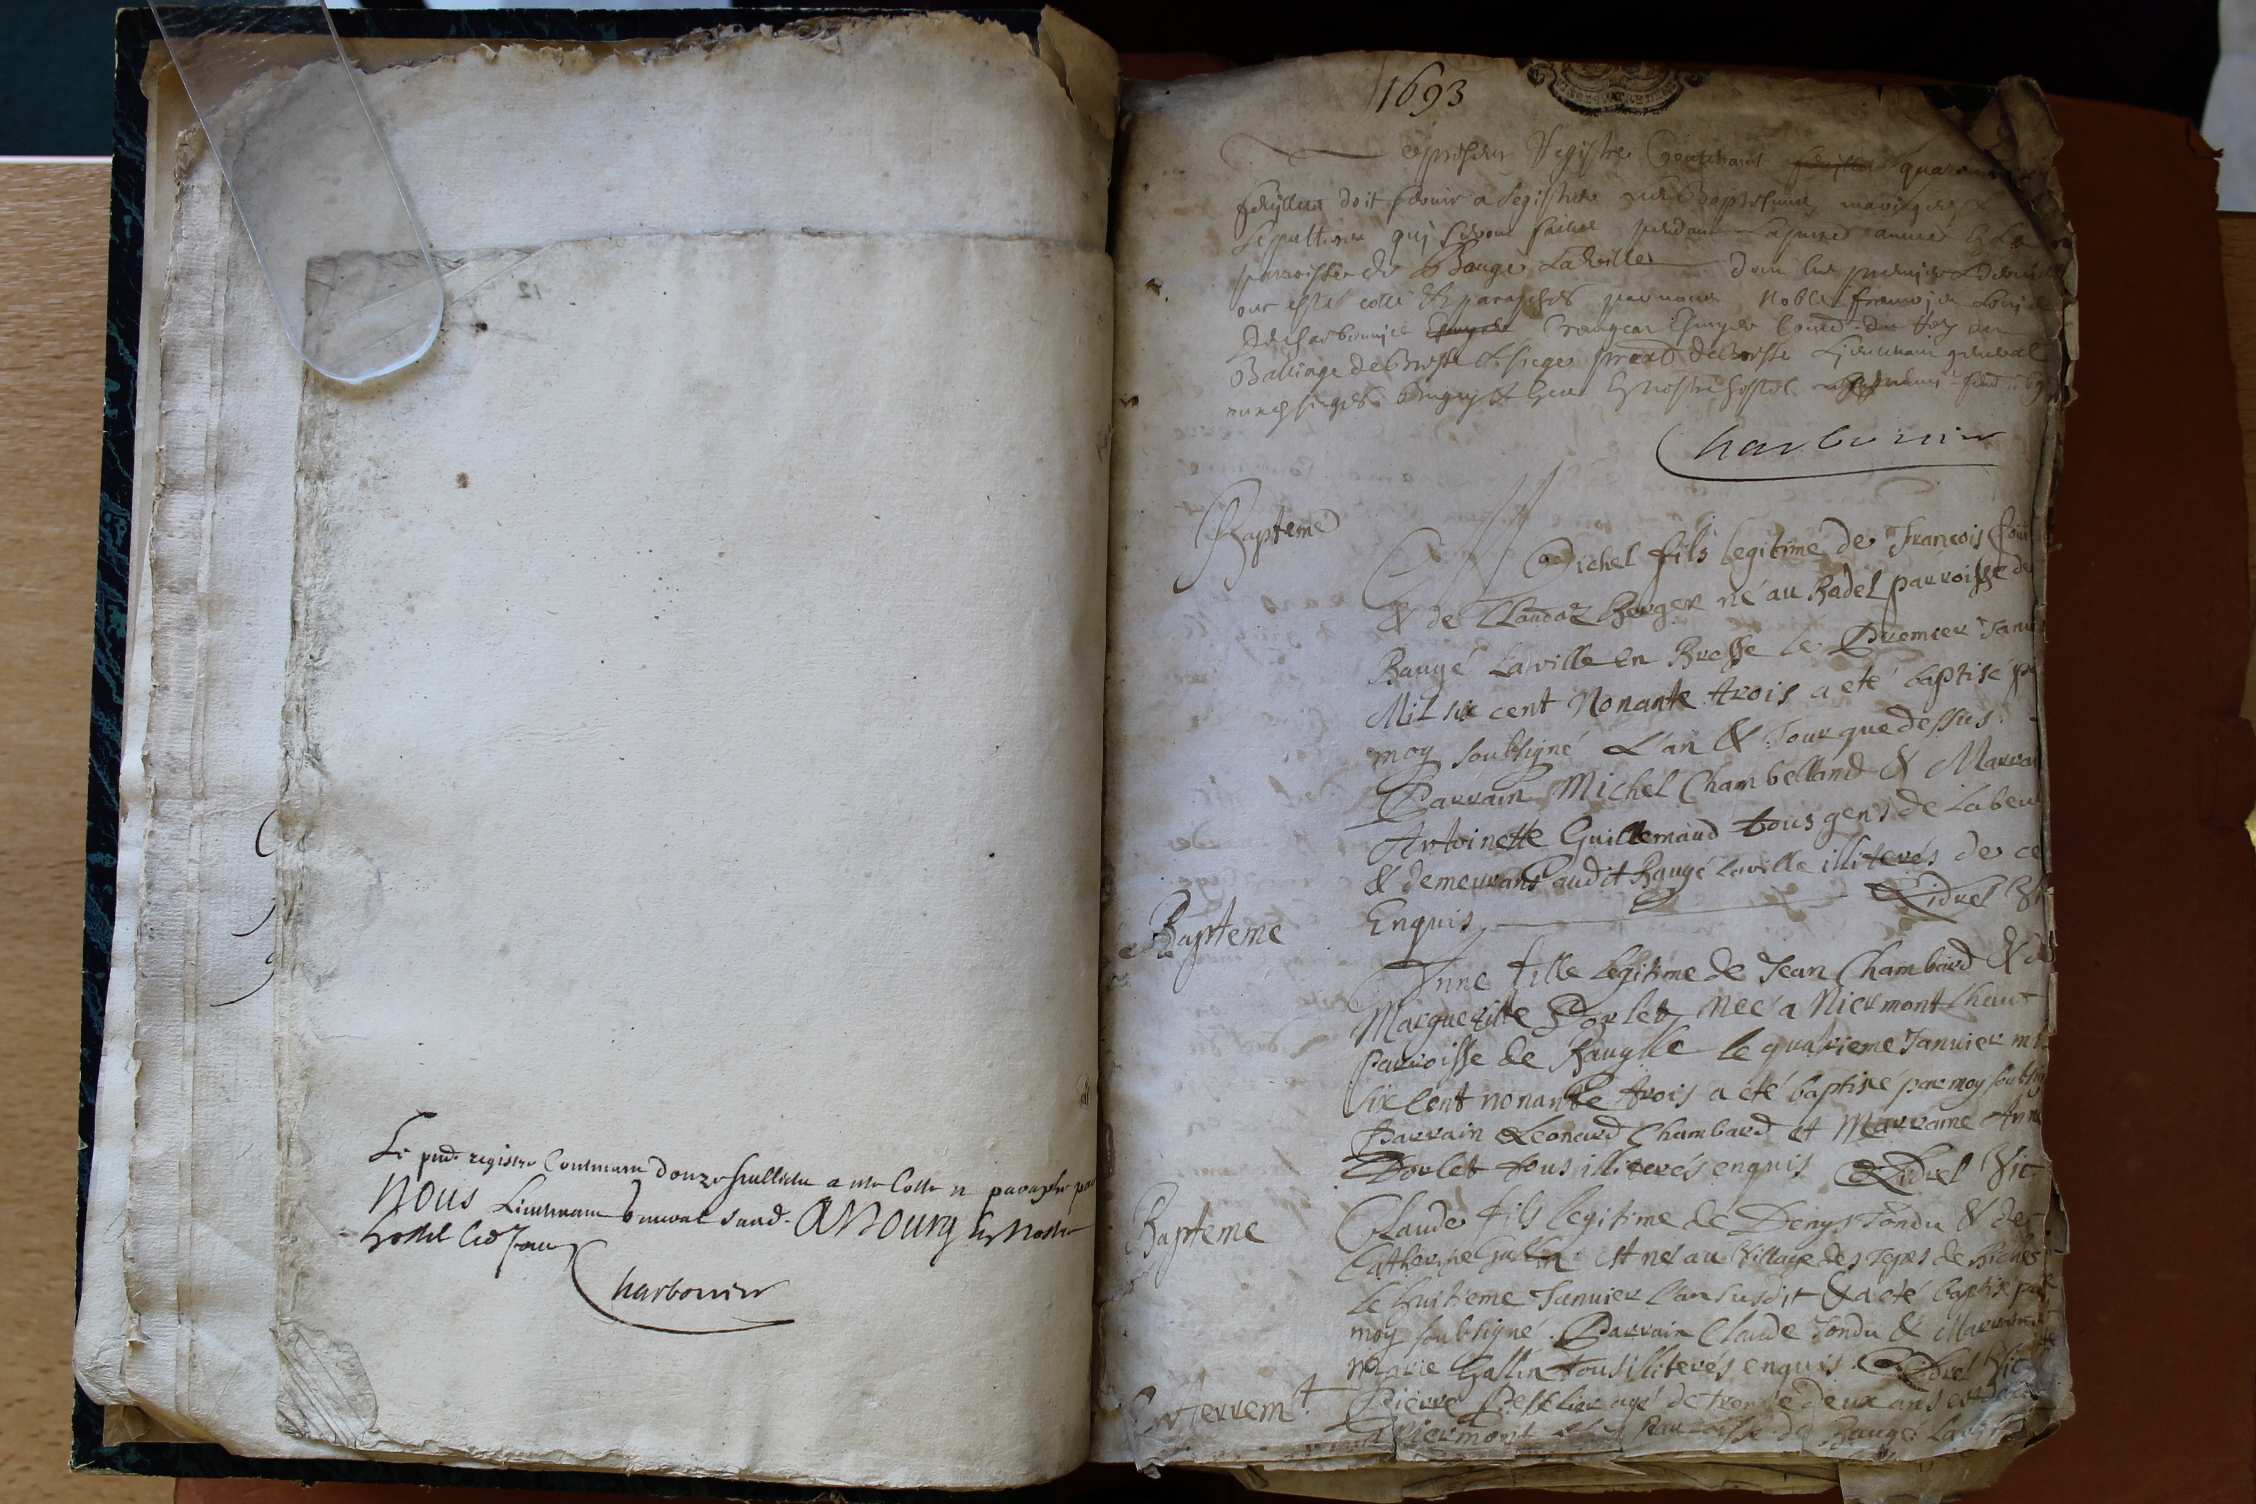 Le pnt registre Contenant douze feuillets a este Cotte et paraphe par
Nous Lieutenant General susd. A Bourg En Nostre
hostel Led Jour
Charbonnier
1693
Le present Registre Contenant quarante
feuillets doit servir a Registrer les Baptesmes, mariages &
Sepultures qui seront faictes pendant la presente année En La
parroisse de Baugé La Ville dont les premier & dernier
ont esté cotté & paraphés par nous Noble françois Louis
De Charbonnier Crangeac Escuyer Conser du Roy au
Balliage de Bresse & siege presid de Bresse Lieutenant general
auxd sieges. A Bourg En nostre hostel
Charbonnier
Bapteme
Michel fils legitime de Francois
& de Claudaz Berger né au Badel parroisse de
Baugé La ville en Bresse le Premier Janv
Mil six cent Nonante trois a eté baptisé p
moy soubsigné L'an & Jour que dessus.
Parrain Michel Chambelland & Marrai
Antoinette Guillemaud tous gens de Labeu
& demeurans audit Baugé laville illiterés de ce
Enquis. Ridrel Vi
Bapteme
Anne fille legitime de Jean Chambard & d
Margueritte Dorlet, Neé a Niermont haut
Parroisse de Baugé le quatrieme Janvier mi
six Cent nonante trois a été baptisé par moy soubsig
Parrain Leonard Chambard et Marraine Anne
Dorlet tous illiterés enquis Ridrel Vic.
Bapteme
Claude fils legitime de Denys Tondu & de
Catherine Gallin est né au Village des Tepes de Biches
le huitieme Janvier l'an susdit & a eté baptisé par
moy soubsigné. Parrain Claude Tondu & Marraine
Marie Gallin tous illiterés enquis. Ridrel Vic
Enterremt.
Pierre agé de trente deux ans
a Niermont Parroisse de Baugé Lavil